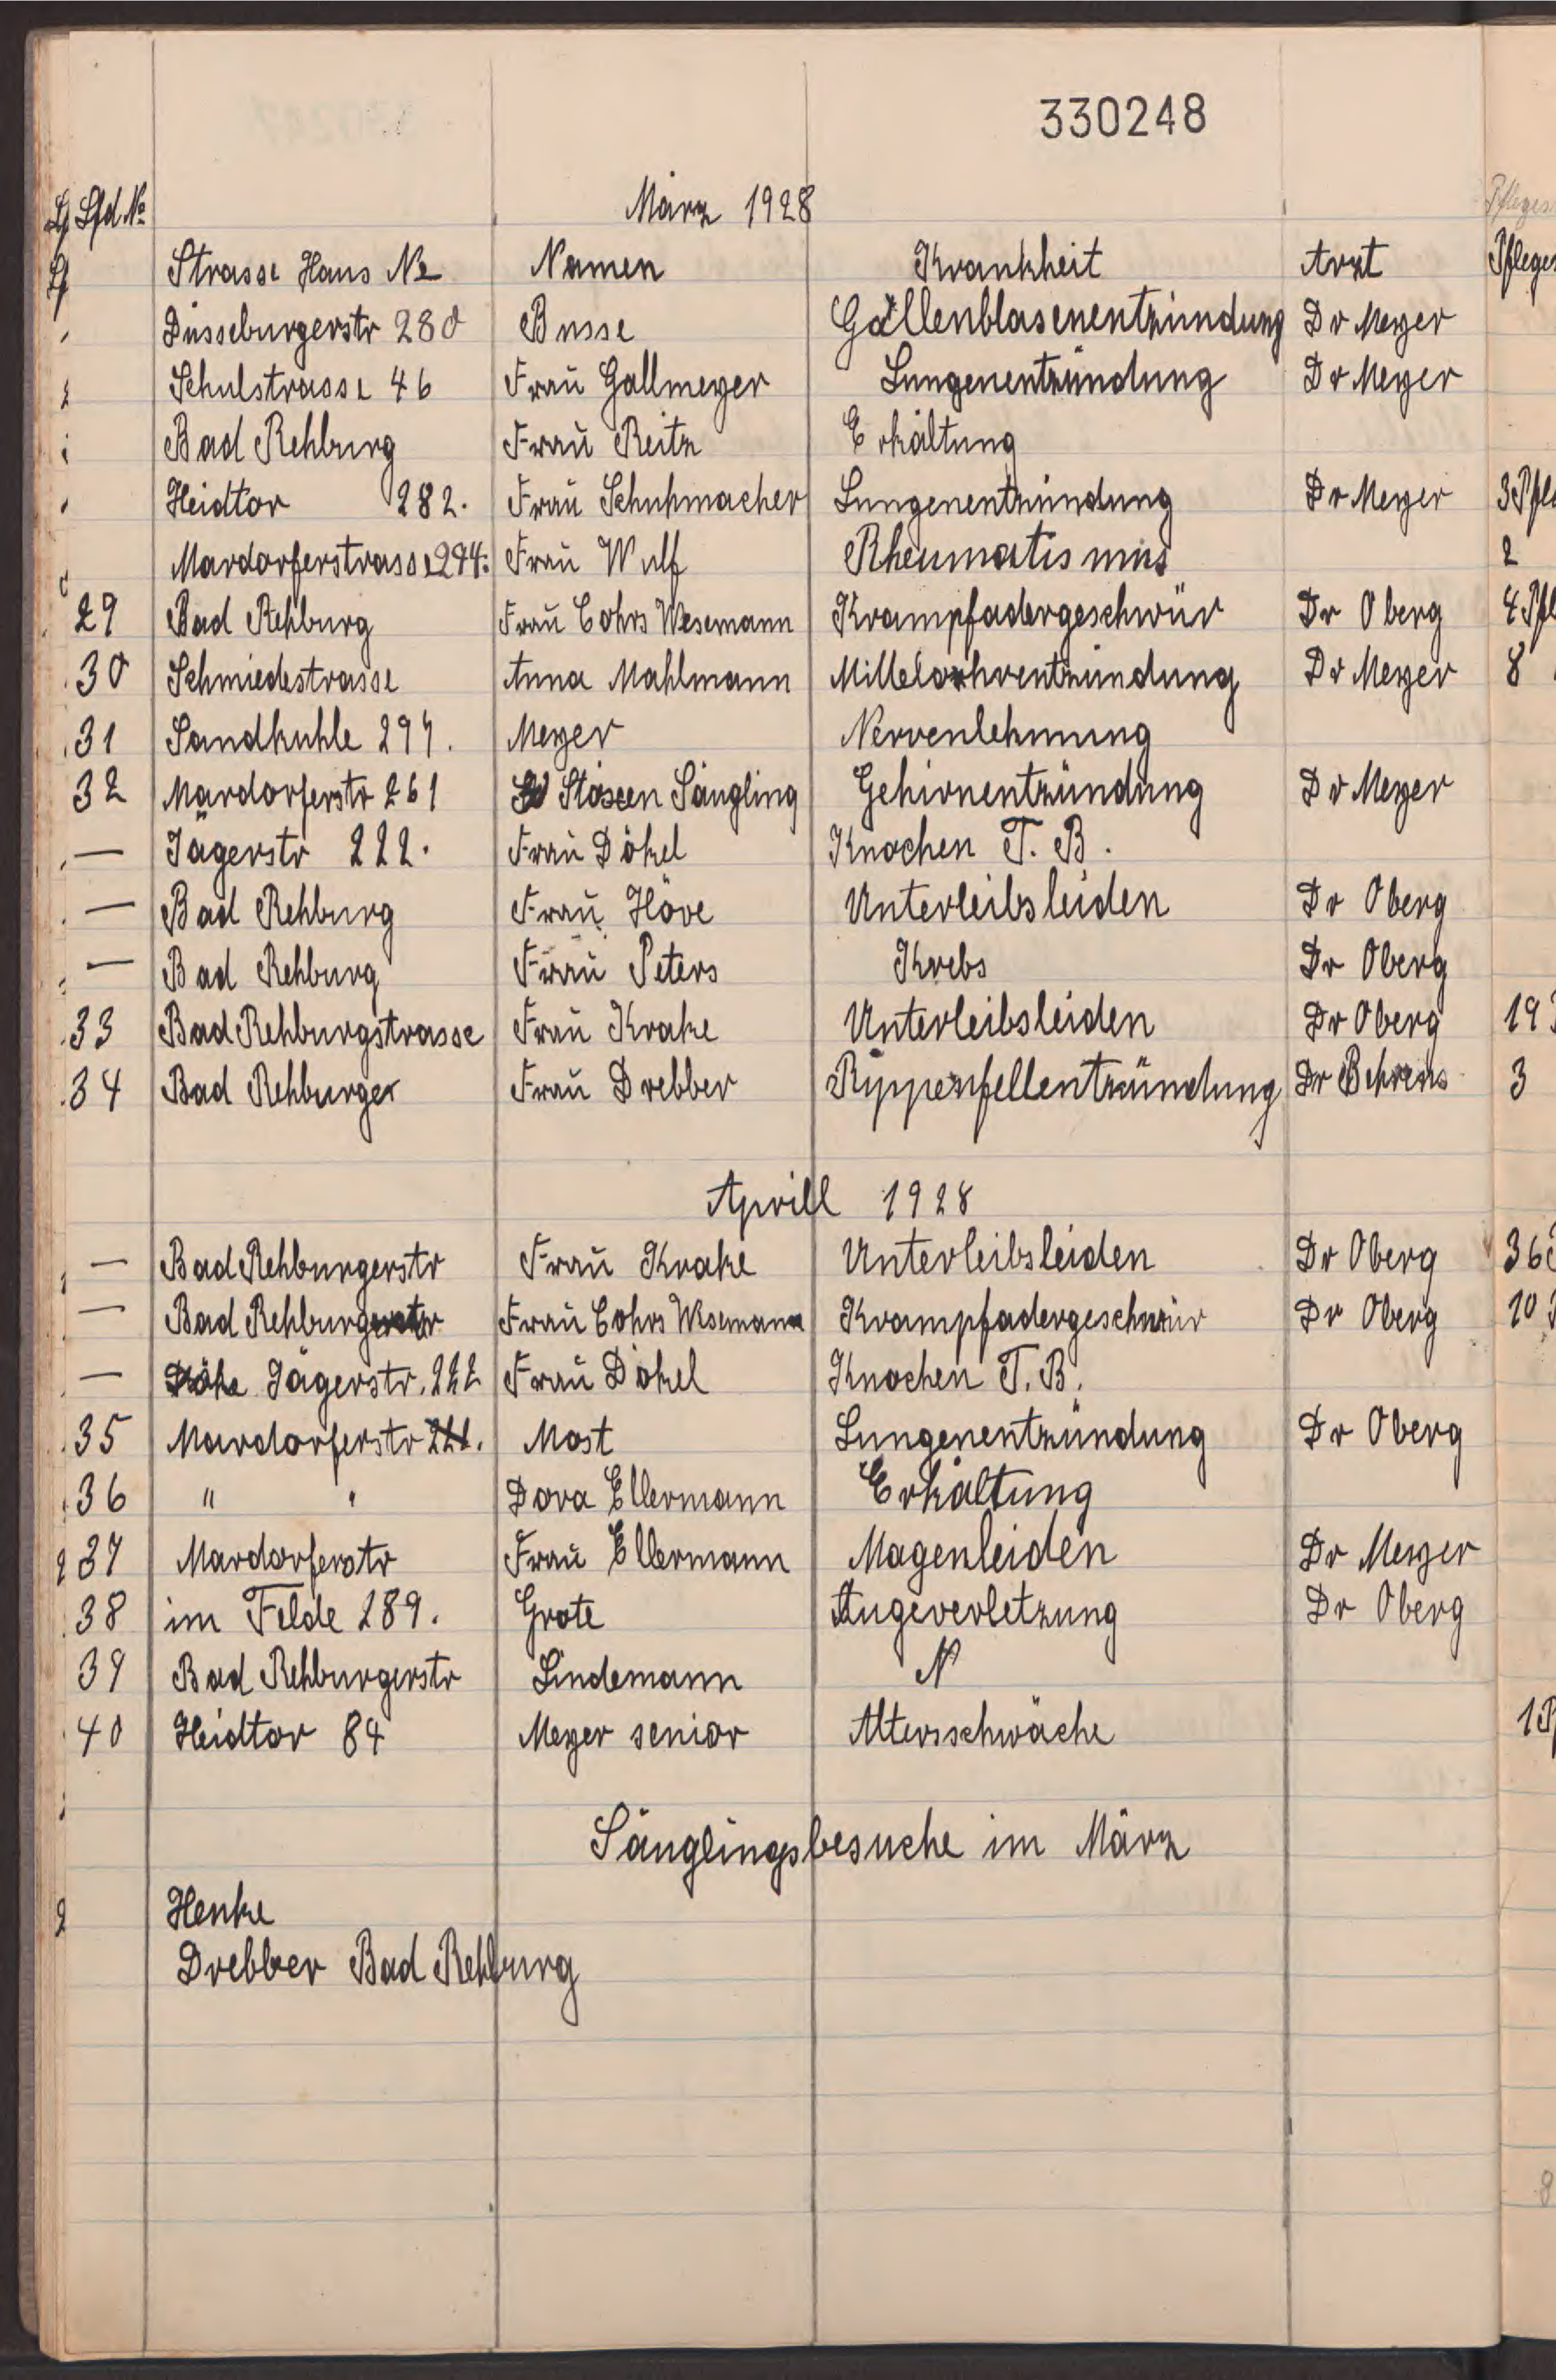 330248
Lfd. No März 1928 Pfleges
Strasse Haus No Namen Krankheit Arzt Pfleges
Düsseburgerstr 280 Busse Gallenblasenentzündung Dr Meyer
Schulstrasse 46 Frau Gallmeyer Lungenentzündung Dr Meyer
Bad Rehburg Frau Reitz Erkältung
Heidtor 282. Frau Schuhmacher Lungenentzündung Dr Meyer 3 Pfl
Mardorferstrasse 294. Frau Wulf Rheumatismus 2
29 Bad Rehburg Frau Cohrs Wesemann Krampfadergeschwür Dr Oberg 4 Pfl
30 Schmiedestrasse Anna Mahlmann Mittelohrentzündung Dr Meyer 8
31 Sandkuhle 297. Meyer Nervenlehmung
32 Mardorferstr 261 Stöxen Säugling Gehirnentzündung Dr Meyer
— Jägerstr 222. Frau Dökel Knochen T. B.
— Bad Rehburg Frau Höve Unterleibsleiden Dr Oberg
— Bad Rehburg Frau Peters Krebs Dr Oberg
33 Bad Rehburgstrasse Frau Krake Unterleibsleiden Dr Oberg 19
34 Bad Rehburger Frau Drebber Rippenfellentzündung Dr Behrens 3
Aprill 1928
— Bad Rehburgerstr Frau Krake Unterleibsleiden Dr Oberg 36
— Bad Rehburgerstr Frau Cohrs Wesemann Krampfadergeschwür Dr Oberg 10
— Jägerstr. 222 Frau Dökel Knochen T. B.
35 Mardorferstr 221. Most Lungenentzündung Dr Oberg
36 " " Dora Ellermann Erkältung
37 Mardorferstr Frau Ellermann Magenleiden Dr Meyer
38 im Felde 289. Grote Augeverletzung Dr Oberg
39 Bad Rehburgerstr Lindemann N
40 Heidtor 84 Meyer senior Altersschwäche 1 P
Säuglingsbesuche im März
Henke
Drebber Bad Rehburg